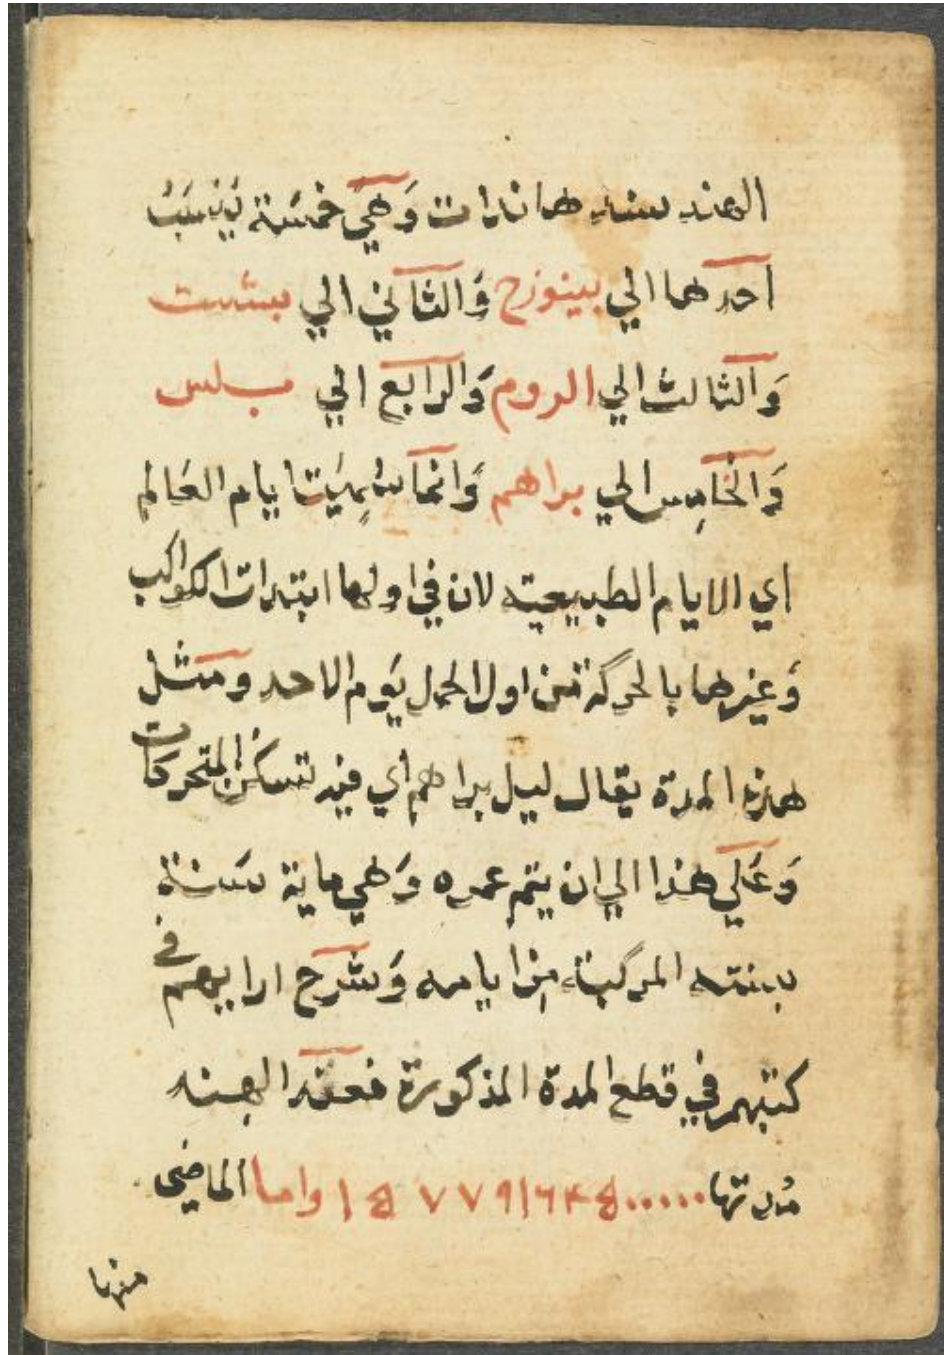 الهند سندهاندات وَهِيَ خمسَة يَنسَبُ
احدهما الي بينوزح وَالثاني الي بيشست
وَالثالث الي الروم وَالرابع الي بلس
وَالخامِس الي براهم وَانما سُمِيَت ايام العَالم
اي الايام الطبيعيته لان في اولها ابتدات الكواكب
وَغيرها بالحركة من اول الحمل يَوم الاحد ومَثل
هذه المدة يقال ليل براهم أي فيه تسكن المتحركات
وَعَلي هذا الي ان يتم عمره وَهي ماية سَنة
بسنته المركبة مِن ايامه وَشرح اراييهم في
كتبهم في قطع المدة المذكورة فعند الهند
مُدتها ١٥٧٧٩١٦٤٥٠٠٠٠٠ واما الماضي
منها